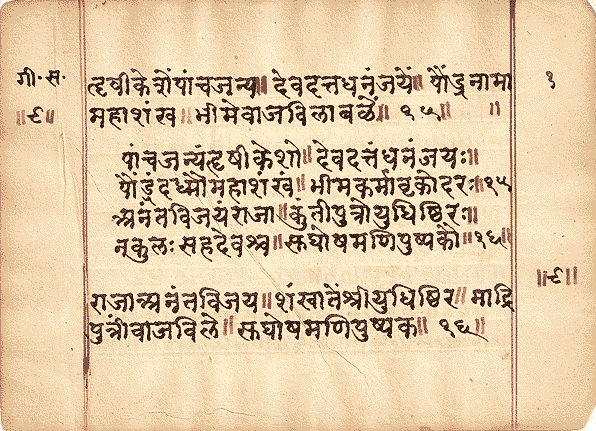 गी॰ स॰
॥९॥
हृषीकेशें पांचजन्य॥ देवदत्त धनंजयें॥ पौंड्र नामा
महाशंख॥ भीमें वाजविला बळें॥ १५॥ ॥
पांचजन्यं हृषीकेशो॥ देवदत्तं धनंजयः॥
पौंड्रं दध्मौ महाशंखं॥ भीमकर्मा वृकोदरः॥१५
अनंतविजयं राजा॥ कुंतीपुत्रो युधिष्ठिरः॥
नकुलः सहदेवश्च॥ सुघोषमणिपुष्पकौ॥१६॥
राजा अनंतविजय॥ शंखातें श्रीयुधिष्ठिर॥ माद्रि
पुत्रीं वाजविले॥ सुघोष मणिपुष्पक॥ १६॥
१
॥९॥